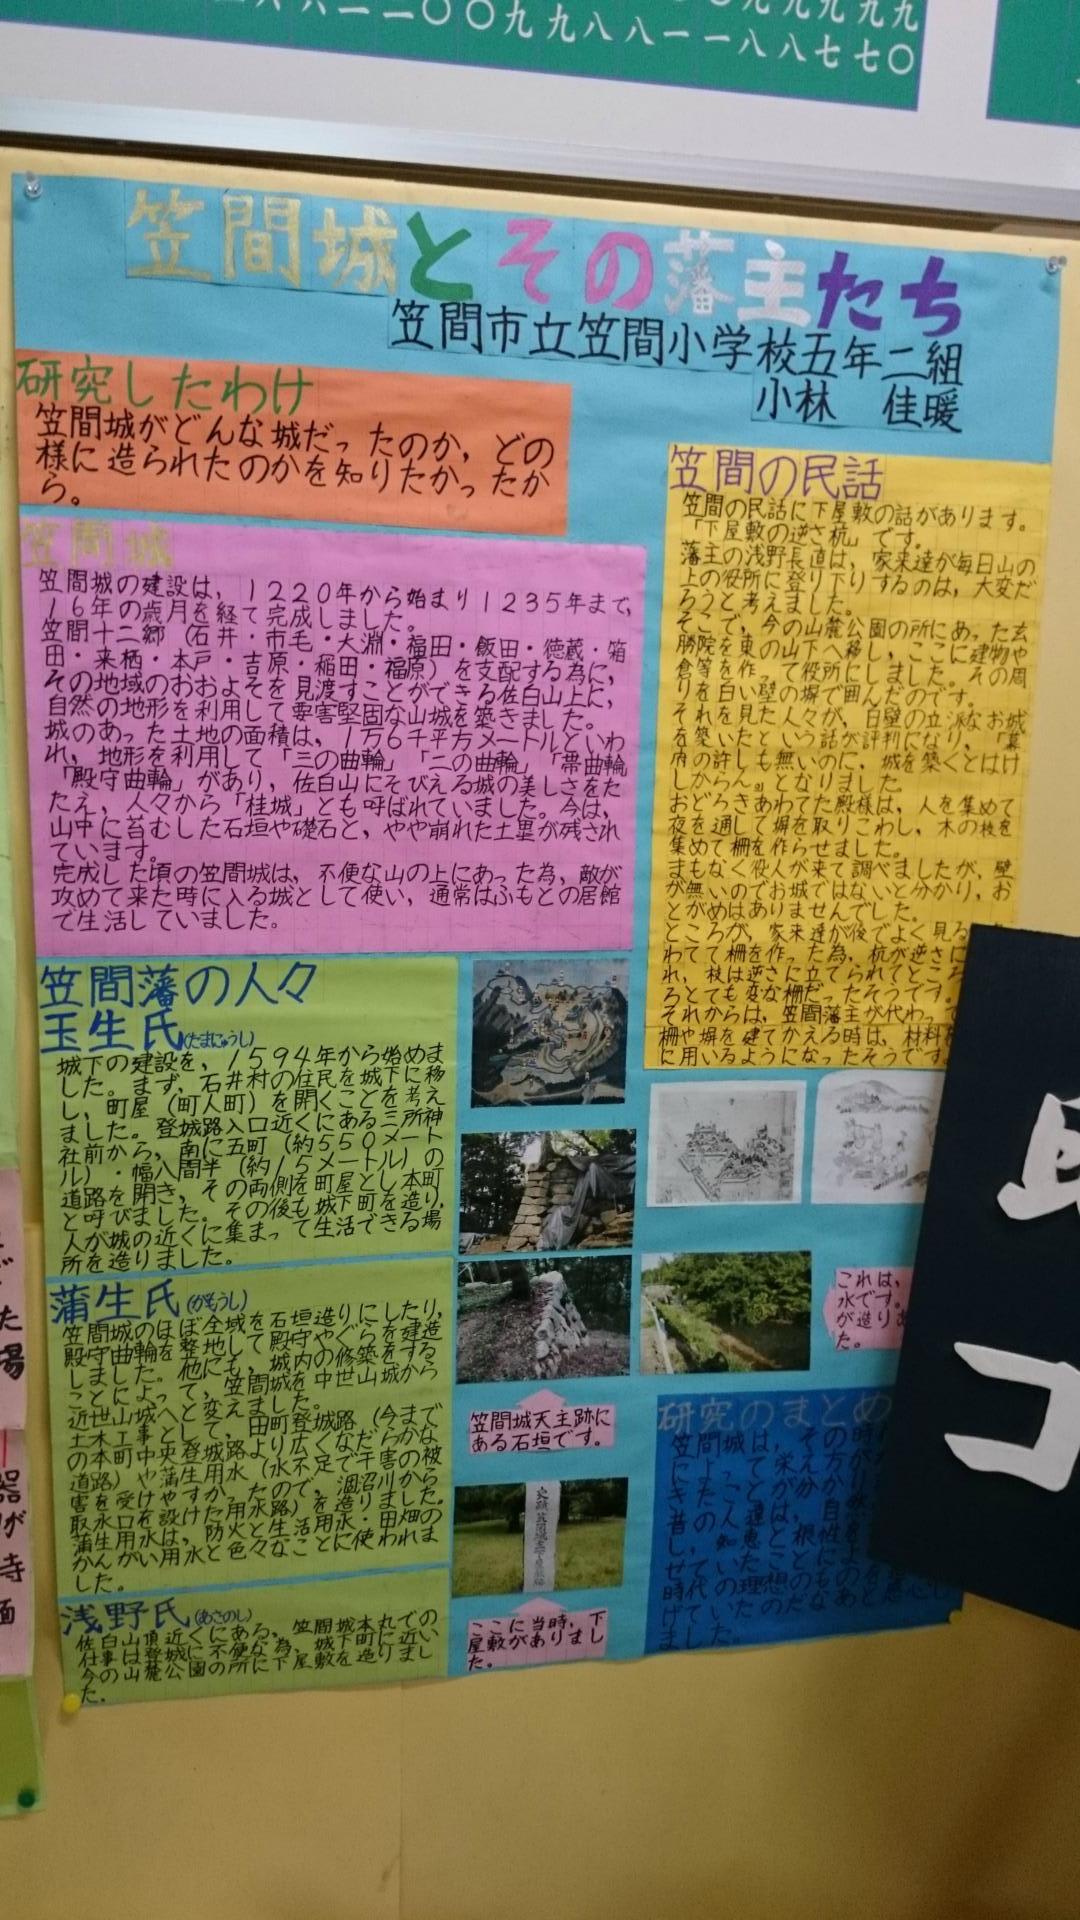 笠間城とその藩主たち
笠間市立笠間小学校五年二組
小林 佳暖
研究したわけ
笠間城がどんな城だったのか，どの
様に造られたのかを知りたかったか
ら。
笠間城
笠間城の建設は，１２２０年から始まり１２３５年まで，
１６年の歳月を経て完成しました。
笠間十二郷（石井・市毛・大淵・福田・飯田・徳蔵・箱
田・来栖・本戸・吉原・稲田・福原）を支配する為に，
その地域のおおよそを見渡すことができる佐白山上に，
自然の地形を利用して要害堅固な山城を築きました。
城のあった土地の面積は，１万６千平方メートルといわ
れ，地形を利用して「三の曲輪」「二の曲輪」「帯曲輪
「殿守曲輪」があり，佐白山にそびえる城の美しさをた
たえ，人々から「桂城」とも呼ばれていました。今は，
山中に苔むした石垣や礎石と，やや崩れた土塁が残され
ています。
完成した頃の笠間城は，不便な山の上にあった為，敵が
攻めて来た時に入る城として使い，通常はふもとの居館
で生活していました。
笠間藩の人々
玉生氏(たまにゅうし)
城下の建設を，１５９４年から始めま
した。まず，石井村の住民を城下に移
し，町屋（町人町）を開くことを考え
ました。登城路入口近くにある三所神
社前から，南に五町（約５５０メート
ル）・幅八間半（約１５メートル）の
道路を開き，その両側を町屋とし本町
と呼びました。その後も城下町を造り，
人が城の近くに集まって生活できる場
所を造りました。
蒲生氏(がもうし)
笠間城のほぼ全域を石垣造りにしたり，
殿守曲輪を整地して殿守やぐらを建造
しました。他にも，城内の修築をする
ことによって，笠間城を中世山城から
近世山城へと変えました。
土木工事として，田町登城路（今まで
の本町中央登城路より広くなだらかな
道路）や蒲生用水（水不足で干害の被
害を受けやすかったので，涸沼川から
取水口を設けた用水路）を造りました。
蒲生用水は，防火と生活用水・田畑の
かんがい用水と色々なことに使われま
した。
浅野氏(あさのし)
佐白山頂近くにある，笠間城本丸での
仕事は登城に不便な為，城下町に近い
今の山麓公園の所に下屋敷を造りまし
た。
笠間の民話
笠間の民話に下屋敷の話があります。
「下屋敷の逆さ杭」です。
藩主の浅野長直は，家来達が毎日山の
上の役所に登り下りするのは，大変だ
ろうと考えました。
そこで，今の山麓公園の所にあった玄
勝院を東の山下へ移し，ここに建物や
倉等を作って役所にしました。その周
りを白い壁の塀で囲んだのです。
それを見た人々が，白壁の立派なお城
を築いたという話が評判になり，「幕
府の許しも無いのに，城を築くとはけ
しからん。」となりました。
おどろきあわてた殿様は，人を集めて
夜を通して塀を取りこわし，木の枝を
集めて柵を作らせました。
まもなく役人が来て調べましたが，壁
が無いのでお城ではないと分かり，お
とがめはありませんでした。
ところが，家来達が後でよく見る
わてて柵を作った為，杭が逆さに
れ，枝は逆さに立てられてところ
ろとても変な柵だったそうです。
それからは，笠間藩主が代わっ
柵や塀を建てかえる時は，材料
に用いるようになったそうです。
これは，
水です。
が造り
た。
笠間城天主跡に
ある石垣です。
ここに当時，下
屋敷がありまし
た。
研究のまとめ
笠間城は，その時
によって栄え方が
きたことが分かり
昔の人達は，自然
し，知恵と根性を
せていたことによ
時代の理想のものを
げていたのだなあと感心し
ました。